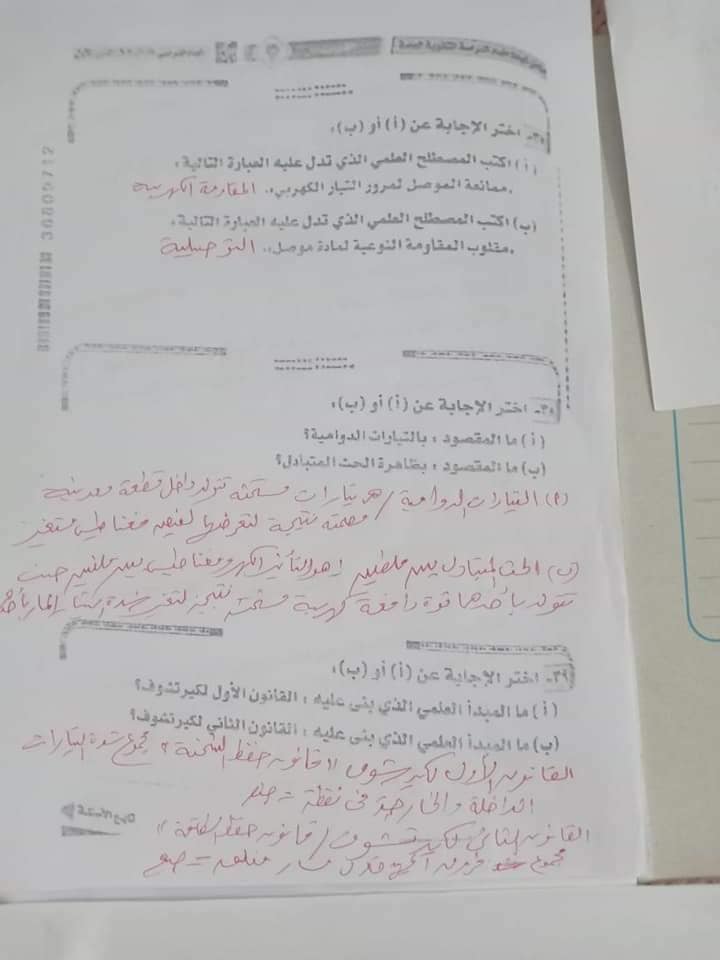 36805712
٣٧- اختر الإجابة عن (أ) أو (ب):
(أ) اكتب المصطلح العلمي الذي تدل عليه العبارة التالية:
«ممانعة الموصل لمرور التيار الكهربي». المقاومة الكهربية
(ب) اكتب المصطلح العلمي الذي تدل عليه العبارة التالية:
«مقلوب المقاومة النوعية لمادة موصل». التوصيلية
٣٨- اختر الإجابة عن (أ) أو (ب):
(أ) ما المقصود: بالتيارات الدوامية؟
(ب) ما المقصود: بظاهرة الحث المتبادل؟
(أ) التيارات الدوامية / هى تيارات مستحثة تتولد داخل قطعة معدنية
مصمتة نتيجة لتعرضها لفيض مغناطيسى متغير
(ب) الحث المتبادل بين ملفين / هو التأثير الكهرومغناطيسى بين ملفين حيث
تتولد بأحدهما قوة دافعة كهربية مستحثة نتيجة لتغير شدة التيار المار
٣٩- اختر الإجابة عن (أ) أو (ب):
(أ) ما المبدأ العلمي الذي بنى عليه: القانون الأول لكيرتشوف؟
(ب) ما المبدأ العلمي الذي بنى عليه: القانون الثاني لكيرتشوف؟
القانون الأول لكيرتشوف "قانون حفظ الشحنة" مجموع شدة التيارات
الداخلة والخارجة فى نقطة = صفر
القانون الثانى لكيرتشوف / قانون حفظ الطاقة"
مجموع فروق الجهد خلال مسار مغلق = صفر